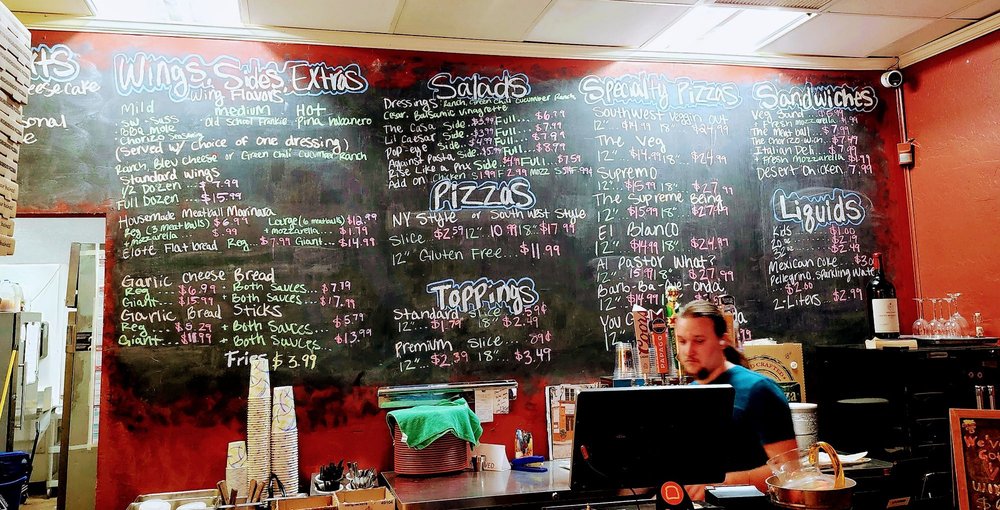 Wings, Sides, Extras
Wing Flavors
Mild Medium Hot
SW-Sass Old School Frankie Pina Habanero
BBQ Mole
(Served w/ Choice of one dressing)
Ranch, Bleu Cheese or Green Chili Cucumber Ranch
Standard Wings
1/2 Dozen ... $7.99
Full Dozen ... $15.99
Housemade Meatball Marinara
Reg (3 meatballs) $6.99 Large (6 meatballs) $12.99
+ mozzarella $.99 + mozzarella $1.99
Elote Flatbread Reg $7.99 Giant... $14.99
Garlic Cheese Bread
Reg $6.99 + Both Sauces... $7.79
Giant... $15.99 + Both Sauces... $17.99
Garlic Bread Sticks
Reg... $5.29 + Both Sauces... $5.79
Giant + Both Sauces... $13.99
Fries $3.99
Salads
Dressings Ranch, Green Chili Cucumber Ranch
Caesar, Balsamic Vinagrette
The Casa Side Full... $6.99
Lil Caesar Side Full... $7.99
Pop-eye Side Full... $8.79
Against Pasta Side Full...
Rise Like a Phx Side Full... $7.59
Add on Chicken
Pizzas
NY Style or South West Style
Slice... $2.59 12" 10.99 18" $17.99
12" Gluten Free... $11.99
Toppings
Standard Slice
12"... $1.79 18"... $2.49
Premium Slice... 89¢
12"... $2.39 18"... $3.49
Specialty Pizzas
Southwest Veggin Out
12"... $14.99 18" $24.99
The Veg
12"... $14.99 18"... $24.99
Supremo
12"... $15.99 18"... $27.99
The Supreme Being
12"... $15.99 18"... $27.99
El Blanco
$14.99 18"... $24.99
Al Pastor What?
12" 15.99 18" $27.99
Barb-ba-que-onda
12"... $14.99
Sandwiches
Veg Sand
+ Fresh mozzarella
The Meatball
The Chorizo-wich
Italian Deli
+ Fresh mozzarella
Desert Chicken 7.99
Liquids
Kids $1.00
Mexican Coke
Pellegrino, Sparkling Water
$2.00
2-Liters... $2.99